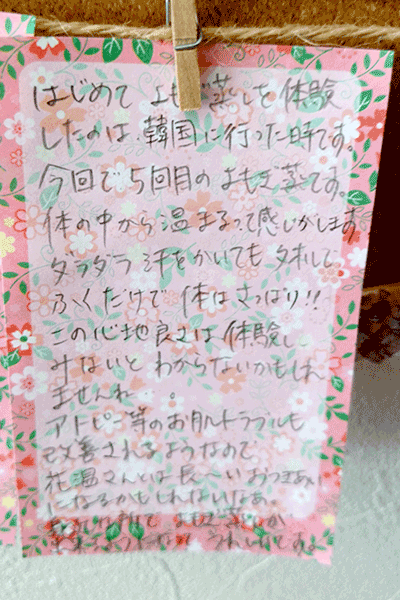 はじめて よもぎ蒸しを体験
したのは、韓国に行った時です。
今回で5回目のよもぎ蒸です。
体の中から温まるって感じがします
ダラダラ汗をかいても タオルで
ふくだけで 体はさっぱり!!
この心地良さは体験し
みないと わからないかもしれ
ませんね。
アトピー等のお肌トラブルも
改善されるようなので
花温さんとは長〜いおつきあい
になるかもしれないなぁ
よもぎ蒸しが
うれしいですよ